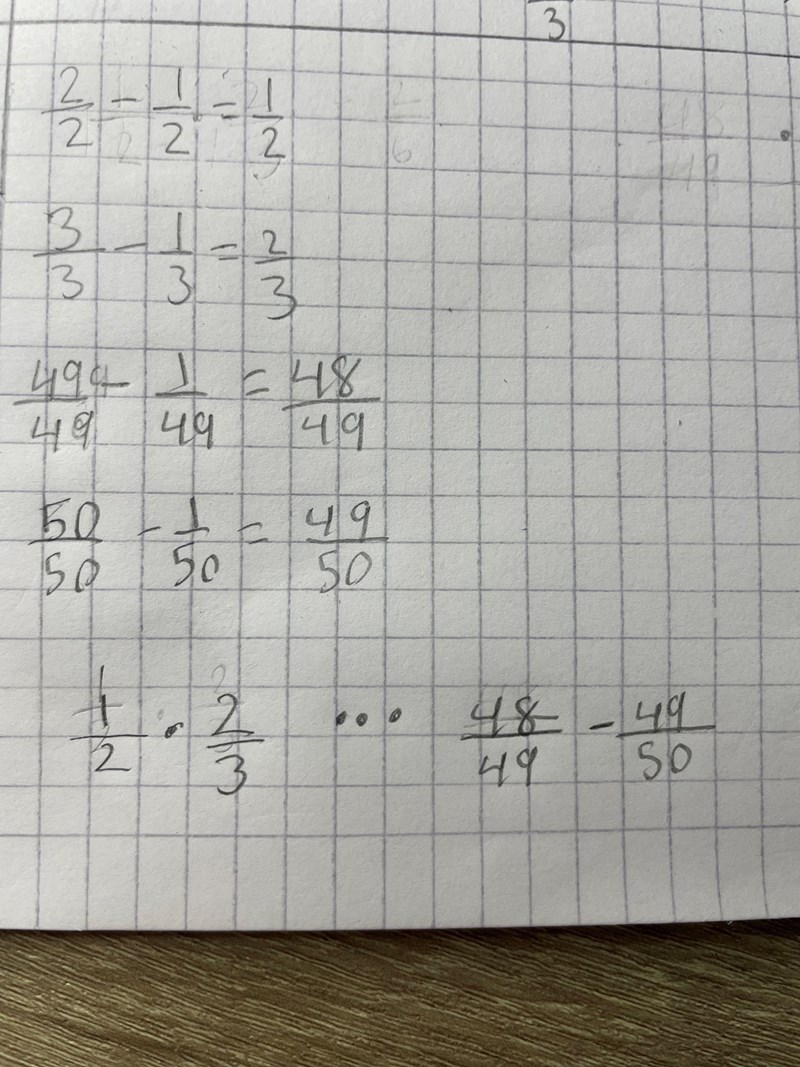 3
2/2 - 1/2 = 1/2
3/3 - 1/3 = 2/3
49/49 - 1/49 = 48/49
50/50 - 1/50 = 49/50
1/2 · 2/3 ... 48/49 - 49/50